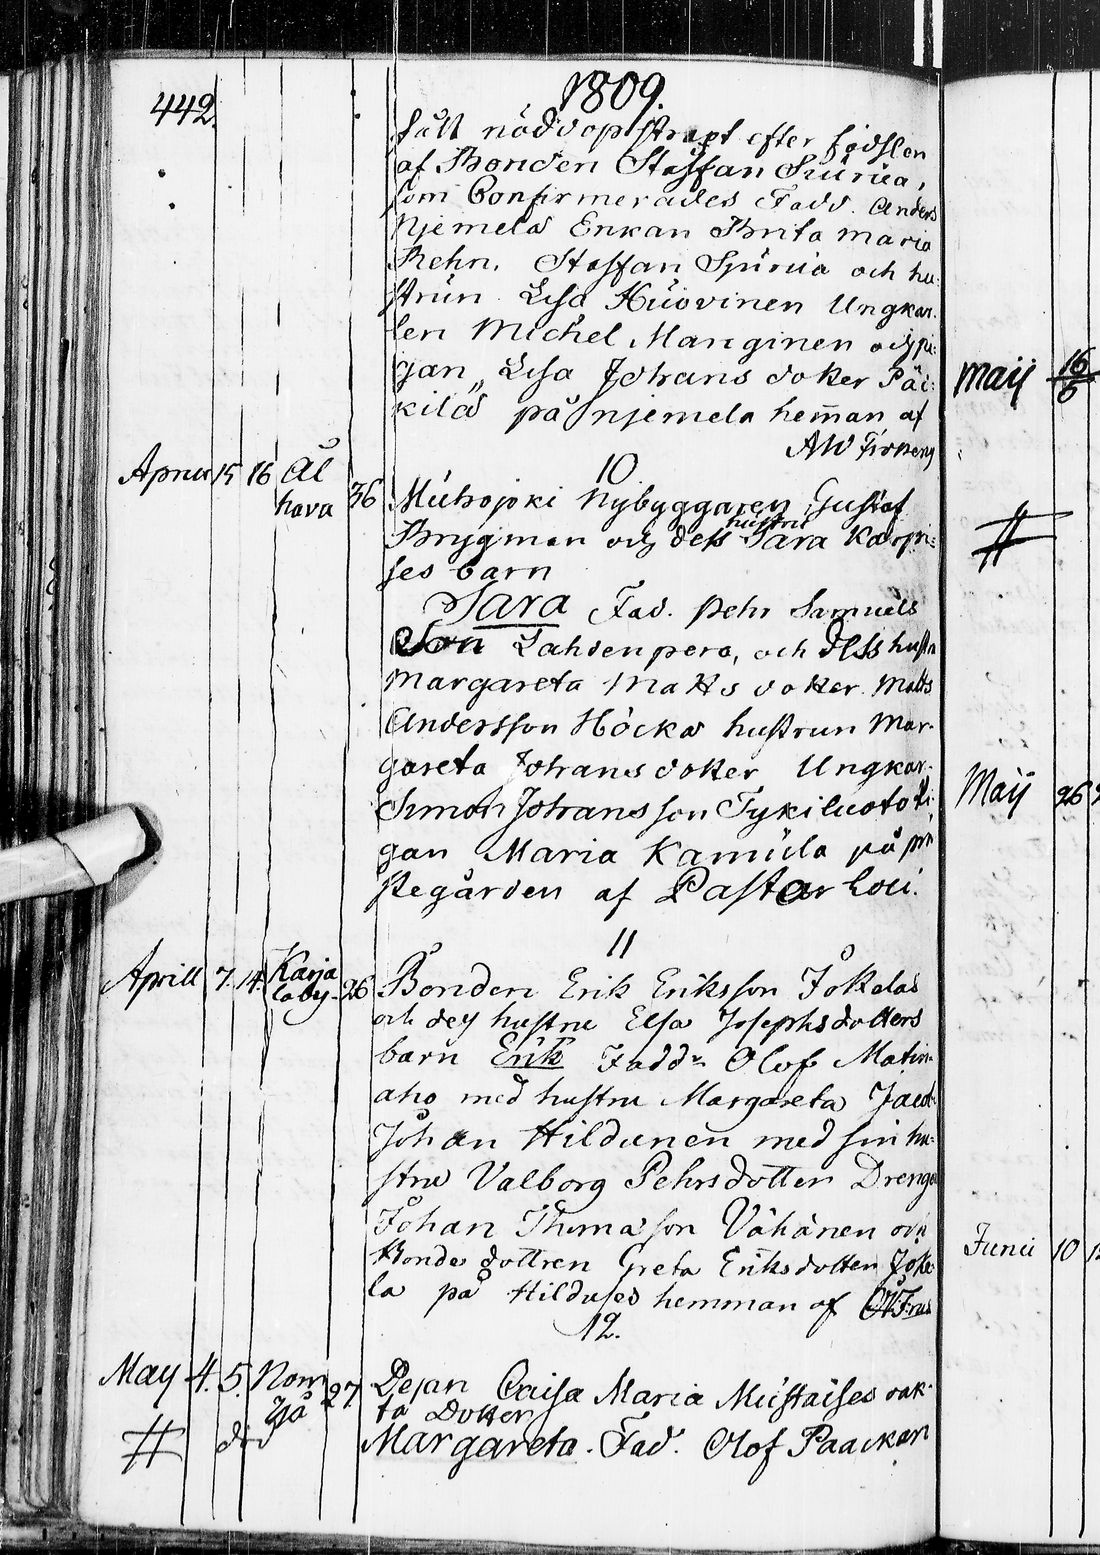 442.
1809.
fått nöddop strapt efter födslen
af Bonden Staffan Spürüa,
som Confirmerades Fadd. Anders
Njemelä Enkan Brita Maria
Rehn, Staffan Spürüa och hu:
strun Lisa Küovinen Ungkar.
len Michel Manginen och pi:
gan Lisa Johans doter Päi:
kilä på Njemela hem̄an af
AW
10.
Aprill 15 16 Ål
hava
36
Mühojoki Nybyggaren Gustaf
Brygman och dess hustru Sara Karpi:
ses barn
Sara Fad. Pehr Samuels
Son Lahdenpera, och dess hustru
Margareta Matts doter Matts
Andersson Höckä hustrun Mar-
gareta Johans doter Ungkar.
Simon Johansson Tykiluoto Pi
gan Maria Kamüla på prä
stegården af Pastor
11
Aprill 7. 14. Karja
laby. 26
Bonden Erik Eriksson Jokelas
och dess hustru Elsa Josephsdotters
barn Erik Fadd. Olof Matin-
aho med hustru Margareta Jacob.
Johan Hildunen med sin hu:
stru Valborg Pehrsdotter Drengen
Johan Thomasson Vähänen och
Bonde dottren Greta Eriksdotter Joke
la på Hilduses hemman af
12.
May 4. 5. Nom
jå 27
död
Pejan Caisa Maria Müstaises oäk-
ta Dotter
Margareta. Fad. Olof Paackari
Maij 16
6
Maij 26
Junii 10